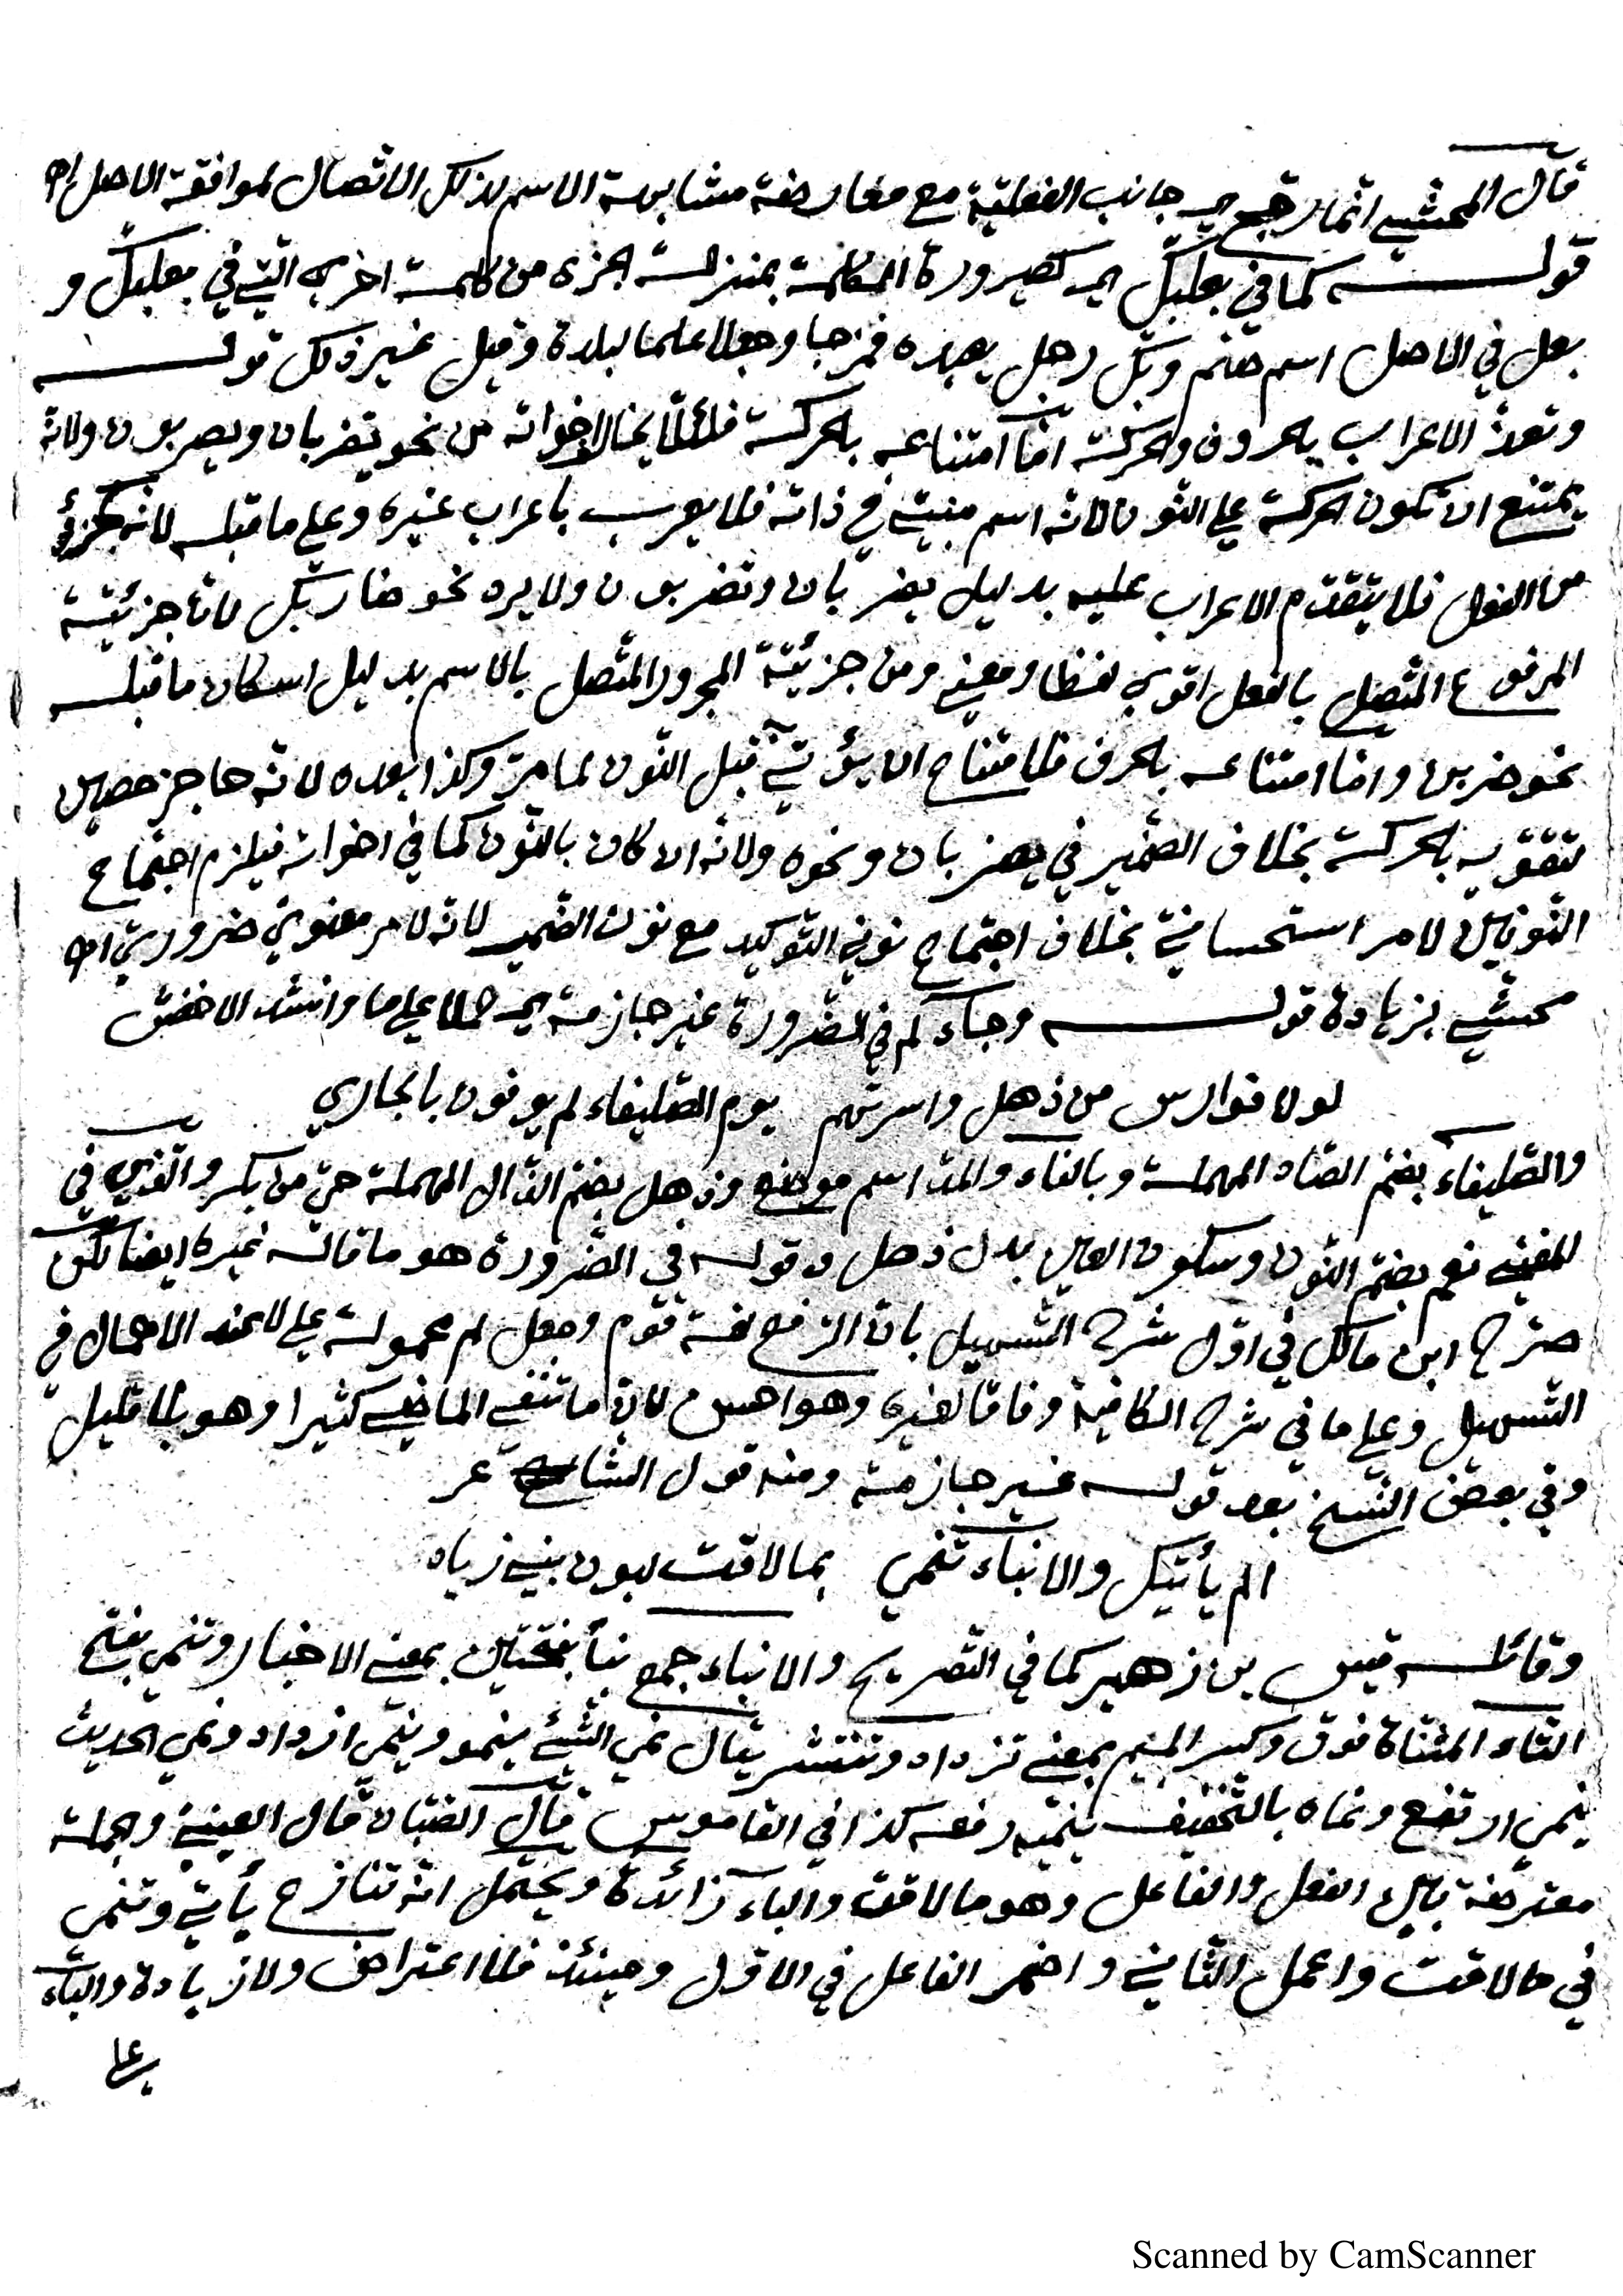 قال المحشي انما رجح ي جانب الفعلية مع معارضة مشابهة الاسم لذلك الاتصال لموافقة الاصل اه
قوله كما في بعلبك اي كصيرورة الكلمة بمنزلة الجزء من كلمة اخرى التي في بعلبك و
بعل في الاصل اسم صنم وبك رجل يعبده فمزجا وجعلا علما لبلدة وقيل غير ذلك قوله
وتعذر الاعراب بالحروف والحركة اما امتناعه بالحركة فلئلا يخالف اخواته من نحو يضربان ويضربون ولانه
يمتنع ان تكون الحركة على النون لانه اسم مبني في ذاته فلا يعرب باعراب غيره وعلى ما قبله لانه كجزئ
من الفعل فلا يتقدم الاعراب عليه بدليل يضربان وتضربون ولا يرد نحو ضاربك لان جزئية
المرفوع المتصل بالفعل اقوى لفظا ومعنى ومن جزئية المجرور المتصل بالاسم بدليل اسكان ما قبله
نحو ضربن واما امتناعه بالحرف فلامتناع ان يؤتى قبل النون لما مر وكذا بعده لانه حاجز حصين
لتقويه بالحركة بخلاف الضمير في يضربان ونحوه ولانه ان كان بالنون كما في اخواته فيلزم اجتماع
النونين لامر استحساني بخلاف اجتماع نوني التوكيد مع نون الضمير لانه لامر معنوي ضروري اه
محشي بزيادة قوله وجاء لم في الضرورة غير جازمة اي حملا على ما وانشد الاخفش
لولا فوارس من ذهل واسرتهم يوم الصليفاء لم يوفون بالجاري
والصليفاء بضم الصاد المهملة وبالفاء والمد اسم موضع وذهل بضم الذال المهملة حي من بكر والذي في
المغني نعم بضم النون وسكون العين بدل ذهل وقوله في الضرورة هو ما قاله غيره ايضا لكن
صرح ابن مالك في اول شرح التسهيل بان الرفع لغة قوم وجعل لم محمولة على لا عند الاهمال في
التسهيل وعلى ما في شرح الكافية وفاقا لغيره وهو احسن لان ما تنفي الماضي كثيرا وهو بلا قليل
وفي بعض النسخ بعد قوله غير جازمة ومنه قول الشاعر
الم يأتيك والانباء تنمي بما لاقت لبون بني زياد
وقائله قيس بن زهير كما في التصريح والانباء جمع نبأ بفتحتين بمعنى الاخبار وتنمي بفتح
التاء المثناة فوق وكسر الميم بمعنى تزداد وتنتشر يقال نمى الشئ ينمو وينمي ازداد ونمى الحديث
ينمي ارتفع ونماه بالتخفيف ينميه رفعه كذا في القاموس قال الصبان قال العيني وجملة
معترضة بين الفعل والفاعل وهو ما لاقت والباء زائدة ويحتمل انه تنازع يأتي وتنمي
في ما لاقت واعمل الثاني واضمر الفاعل في الاول وحينئذ فلا اعتراض ولا زيادة والباء
على
Scanned by CamScanner